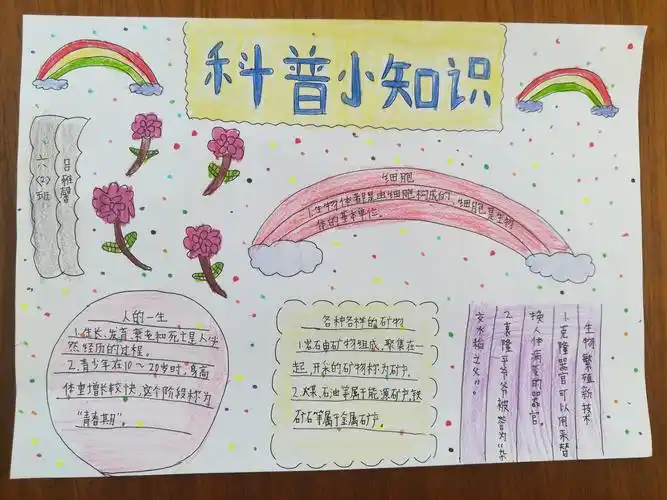 科普小知识
六(2)班
吕雅馨
细胞
1.生物体都是由细胞构成的,细胞是生物
体的基本单位。
人的一生
1.生长、发育、衰老和死亡是人生
必然经历的过程。
2.青少年在10～20岁时,身高
体重增长较快,这个阶段称为
“青春期”。
各种各样的矿物
1.岩石由矿物组成,聚集在一
起,开采的矿物称为矿产。
2.煤、石油等属于能源矿产,铁
矿石等属于金属矿产。
生物繁殖新技术
1.克隆器官可以用来替
换人体病变的器官。
2.袁隆平爷爷被誉为“杂
交水稻之父”。